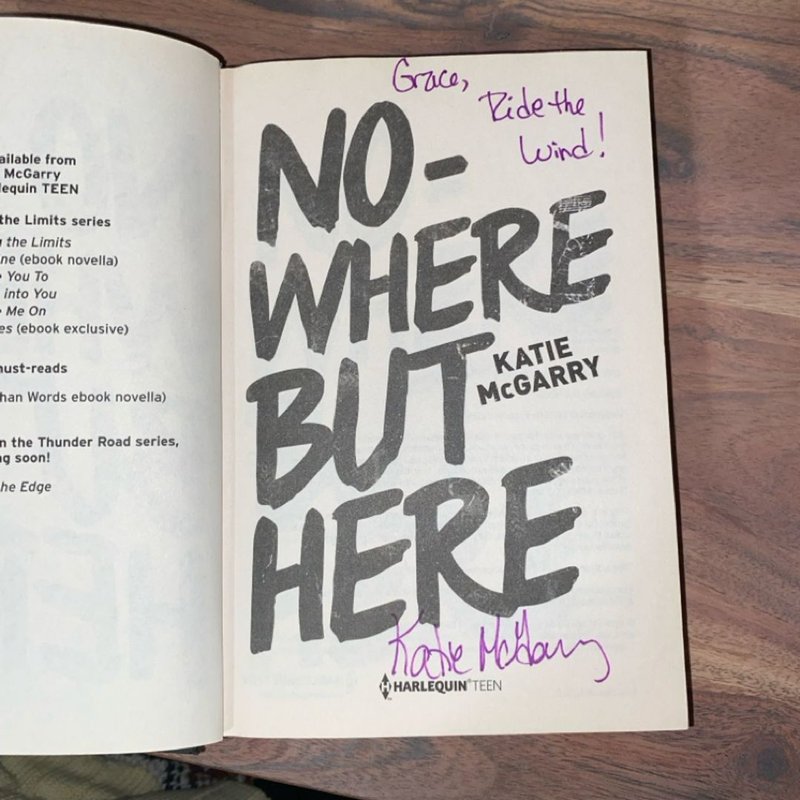 ailable from
McGarry
lequin TEEN
the Limits series
the Limits
ne (ebook novella)
You To
into You
Me On
es (ebook exclusive)
ust-reads
han Words ebook novella)
n the Thunder Road series,
g soon!
he Edge
Grace,
Ride the
Wind!
NO-
WHERE
BUT
HERE
KATIE
McGARRY
Katie McGarry
HARLEQUIN® TEEN